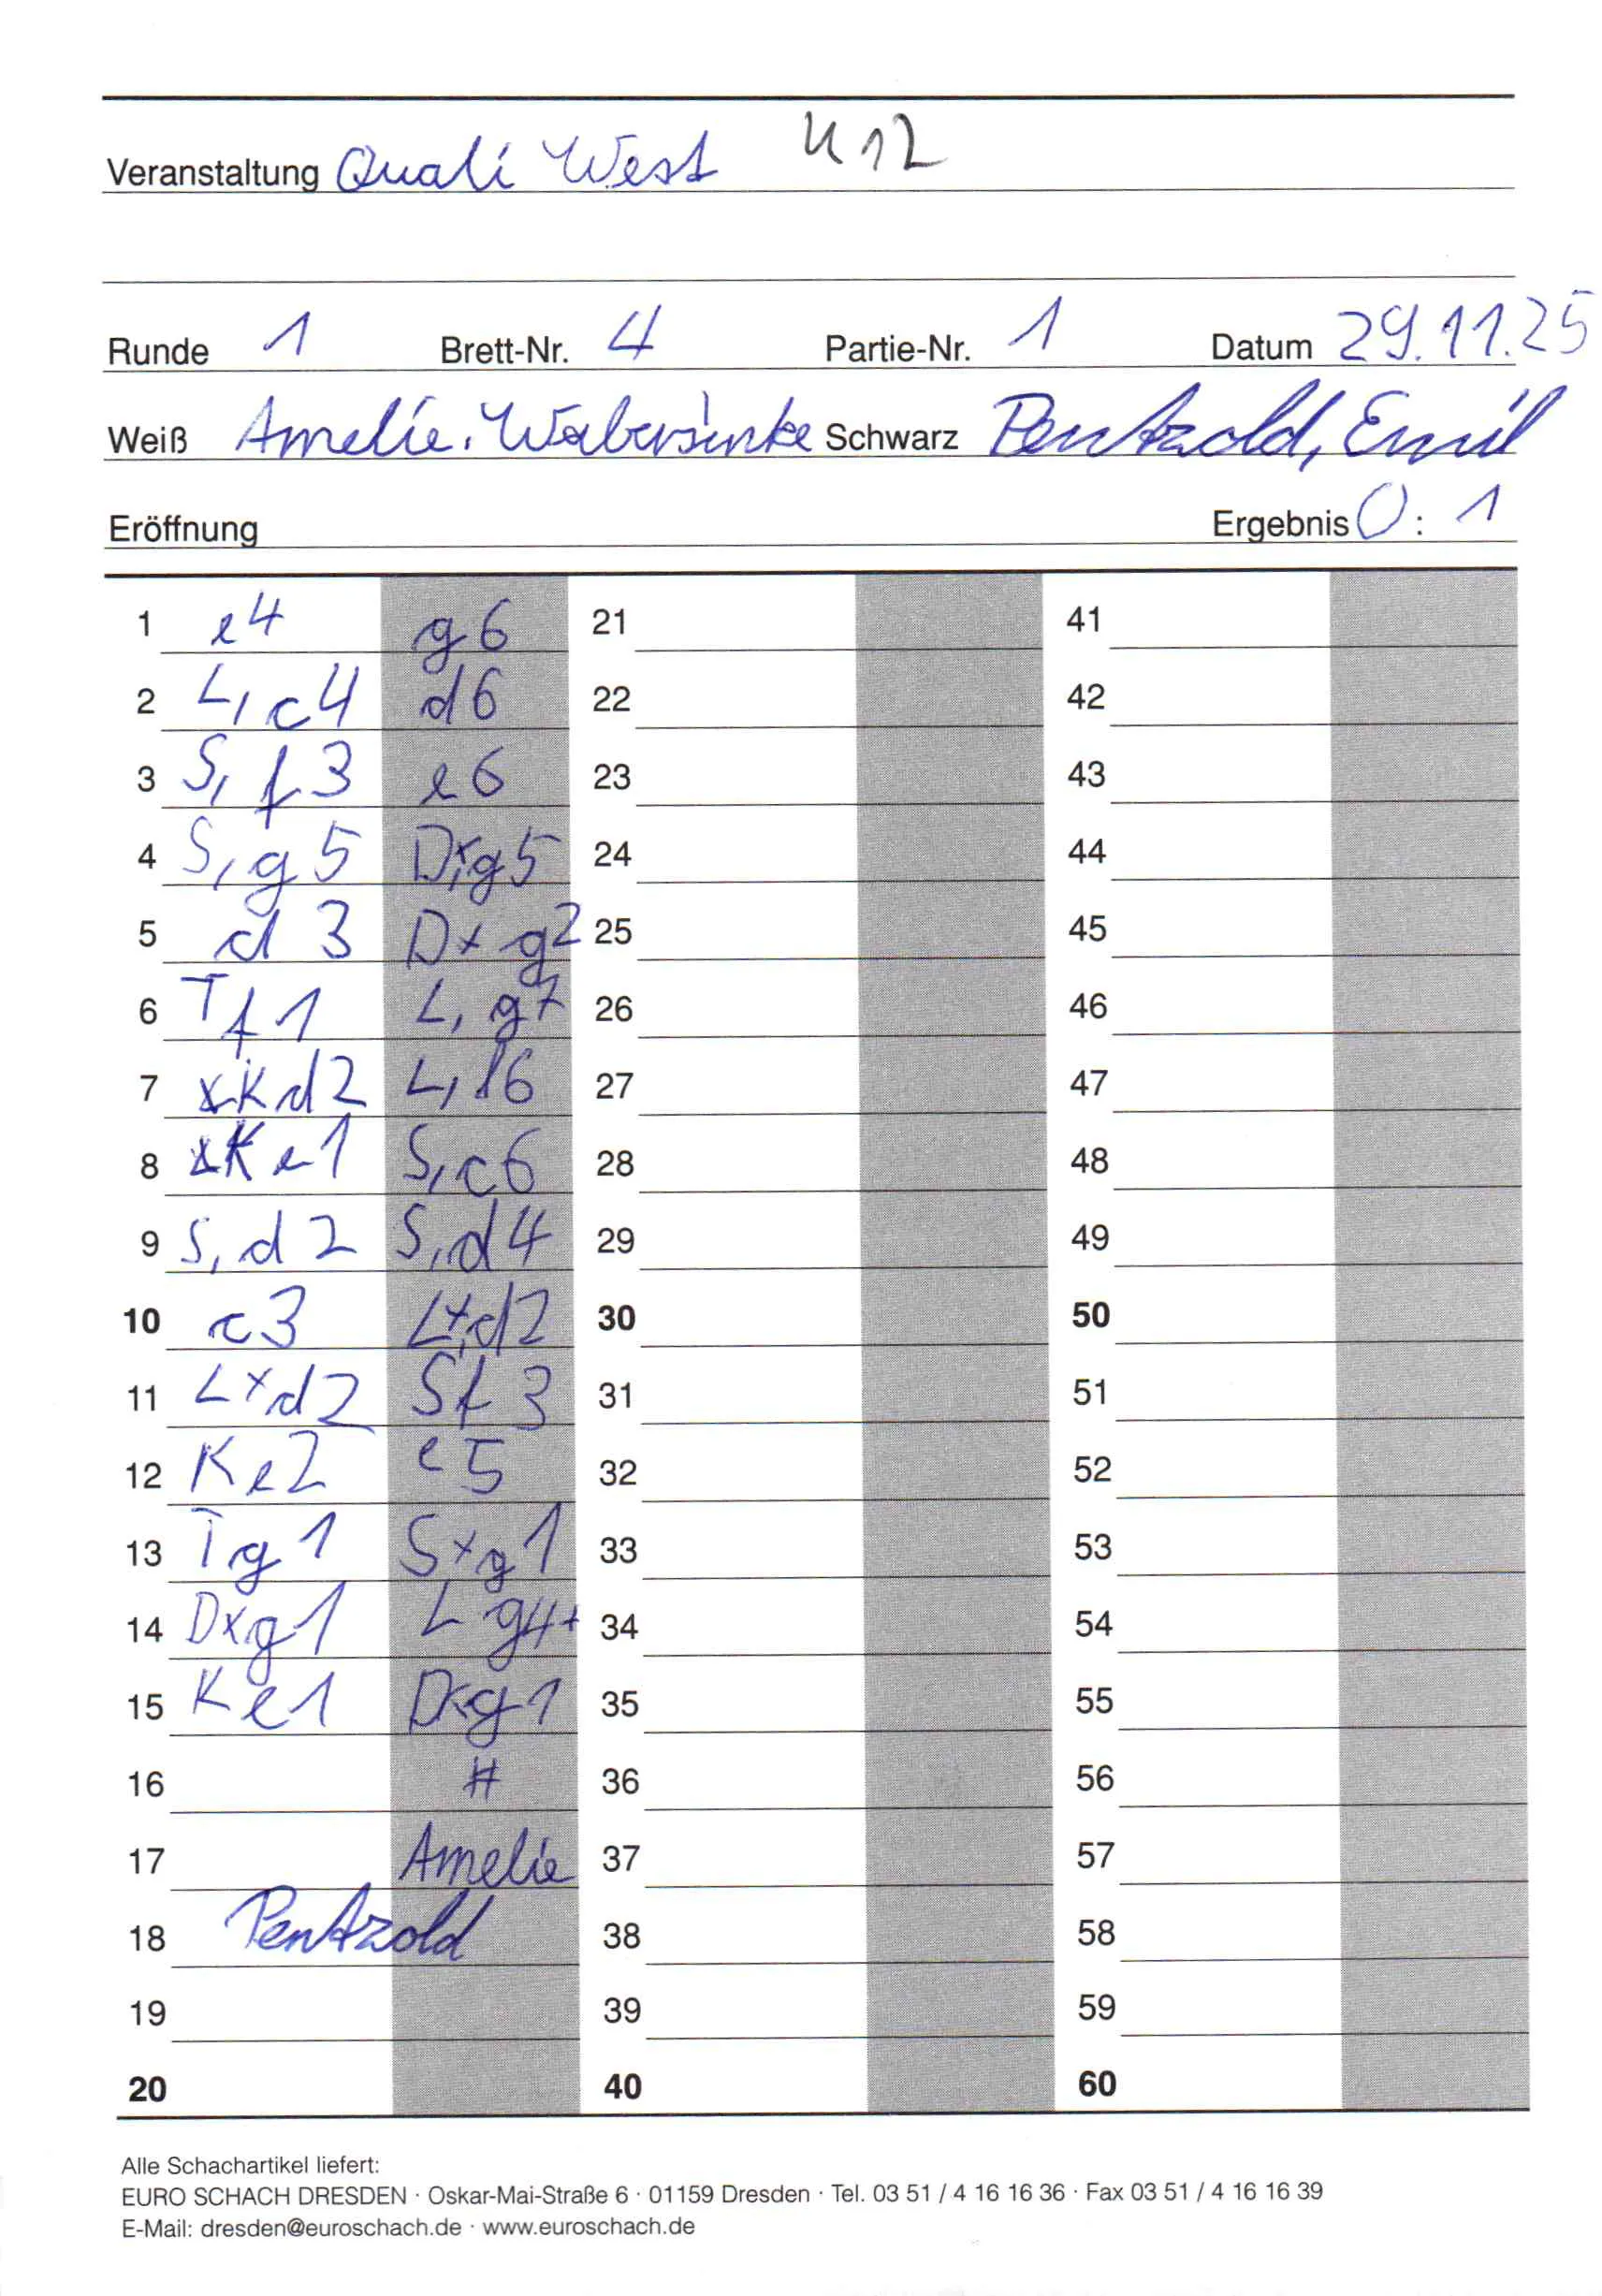 Veranstaltung Quali West U12
Runde 1 Brett-Nr. 4 Partie-Nr. 1 Datum 29.11.25
Weiß Amelie. Wabersinke Schwarz Pentzold, Emil
Eröffnung Ergebnis 0 : 1
1 e4 g6 21 41
2 L, c4 d6 22 42
3 S, f3 e6 23 43
4 S, g5 Dxg5 24 44
5 d3 Dx g2 25 45
6 Tf1 L, g7 26 46
7 Kd2 L, h6 27 47
8 Ke1 S, c6 28 48
9 S, d2 S, d4 29 49
10 c3 Lxd2 30 50
11 Lxd2 Sf3 31 51
12 Ke2 e5 32 52
13 Tg1 Sxg1 33 53
14 Dxg1 Lg4+ 34 54
15 Ke1 Dxg1 35 55
16 # 36 56
17 Amelie 37 57
18 Pentzold 38 58
19 39 59
20 40 60
Alle Schachartikel liefert:
EURO SCHACH DRESDEN · Oskar-Mai-Straße 6 · 01159 Dresden · Tel. 03 51 / 4 16 16 36 · Fax 03 51 / 4 16 16 39
E-Mail: dresden@euroschach.de · www.euroschach.de